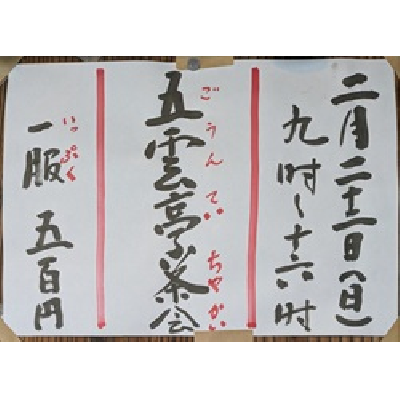 二月二十二日（日）
九時～十六時
ごうんてい ちゃかい
五雲亭茶会
いっぷく
一服 五百円